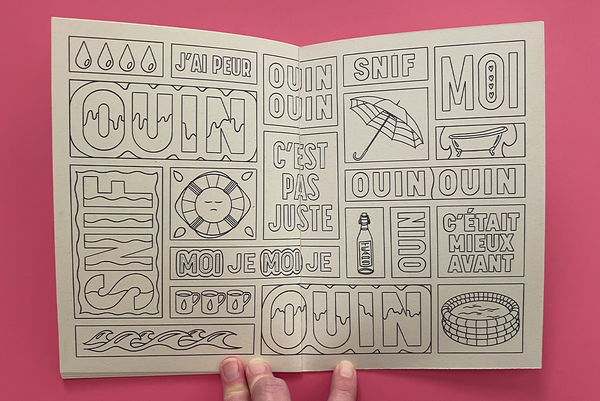 J'AI PEUR
OUIN
OUIN
SNIF
MOI
OUIN
C'EST
PAS
JUSTE
OUIN OUIN
SNIF
OUIN
C'ÉTAIT
MIEUX
AVANT
MOI JE MOI JE
OUIN